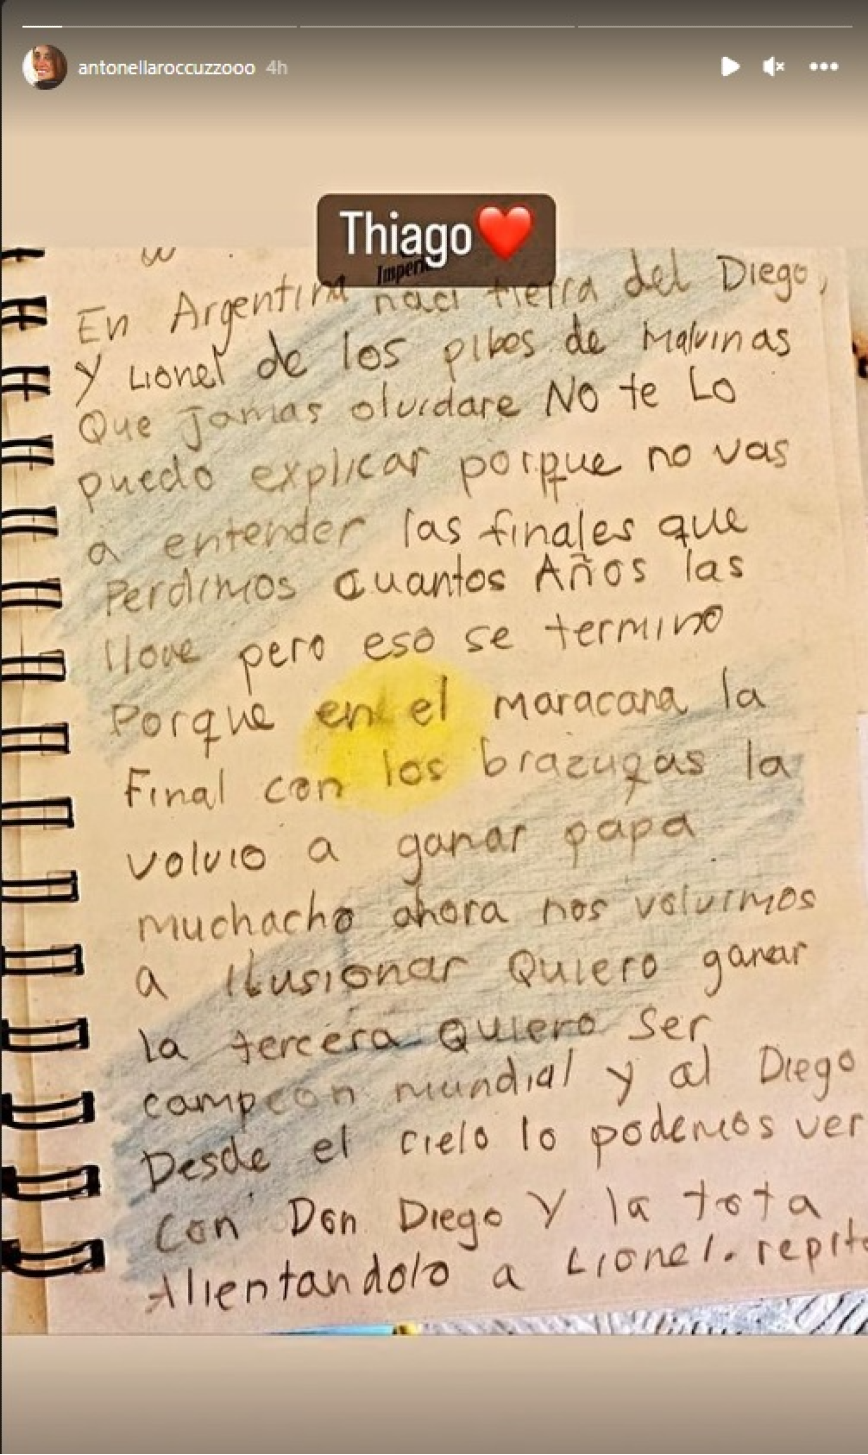 antonellaroccuzzooo 4h
Thiago❤️
En Argentina naci tierra del Diego,
Y Lionel de los pibes de Malvinas
Que Jamas olvidare No te Lo
puedo explicar porque no vas
a entender las finales que
Perdimos Cuantos Años las
llore pero eso se termino
Porque en el maracana la
Final con los brazugas la
volvio a ganar papa
muchacho ahora nos volvimos
a Ilusionar Quiero ganar
la tercera Quiero Ser
campeon mundial y al Diego
Desde el cielo lo podemos ver
Con Don Diego Y la tota
Alientandolo a Lionel. repit